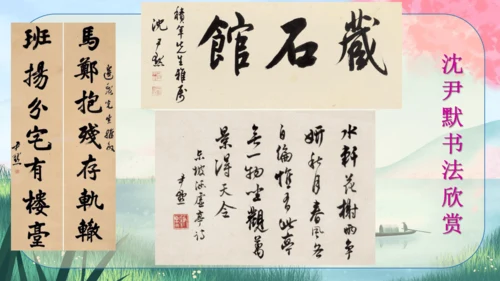 沈尹默书法欣赏
藏石館
積年先生雅屬
沈尹默
馬鄭抱殘存軌轍
班揚分宅有樓臺
尹默
水軒花榭兩爭
妍秋月春風各
自偏惟有此亭
無一物坐觀萬
景得天全
東坡涵虛亭詩
尹默